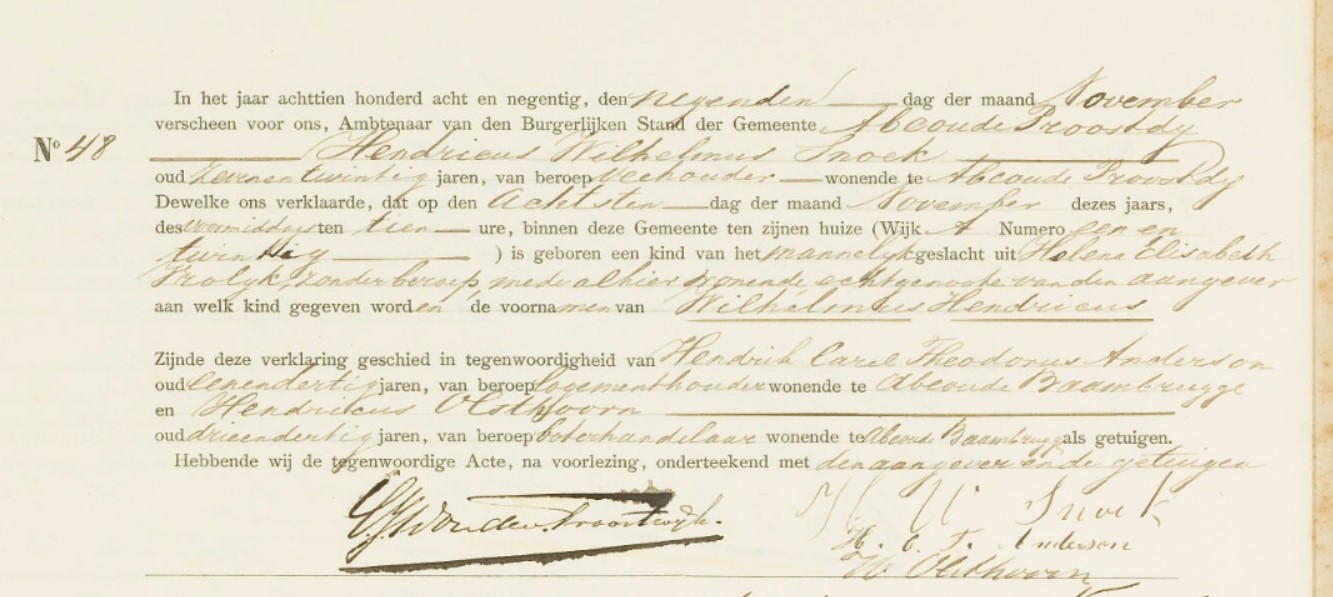 In het jaar achttien honderd acht en negentig, den negenden dag der maand November
verscheen voor ons, Ambtenaar van den Burgerlijken Stand der Gemeente Abcoude Proostdy
No 48 Hendricus Wilhelmus Snoek
oud zevenentwintig jaren, van beroep veehouder wonende te Abcoude Proostdy
Dewelke ons verklaarde, dat op den Achtsten dag der maand November dezes jaars,
des voormiddags ten tien ure, binnen deze Gemeente ten zijnen huize (Wijk A Numero een en
twintig ) is geboren een kind van het mannelyk geslacht uit Helena Elisabeth
Vrolyk, zonder beroep, mede alhier wonende, echtgenoote van den aangever
aan welk kind gegeven worden de voornamen van Wilhelmus Hendricus
Zijnde deze verklaring geschied in tegenwoordigheid van Hendrik Carel Theodorus Anderson
oud eenendertig jaren, van beroep logementhouder wonende te Abcoude Baambrugge
en Hendricus Olsthoorn
oud drieendertig jaren, van beroep boterhandelaar wonende te Abcoude Baambrugge als getuigen.
Hebbende wij de tegenwoordige Acte, na voorlezing, onderteekend met den aangever en de getuigen
H W Snoek
H. C. T. Anderson
Olsthoorn